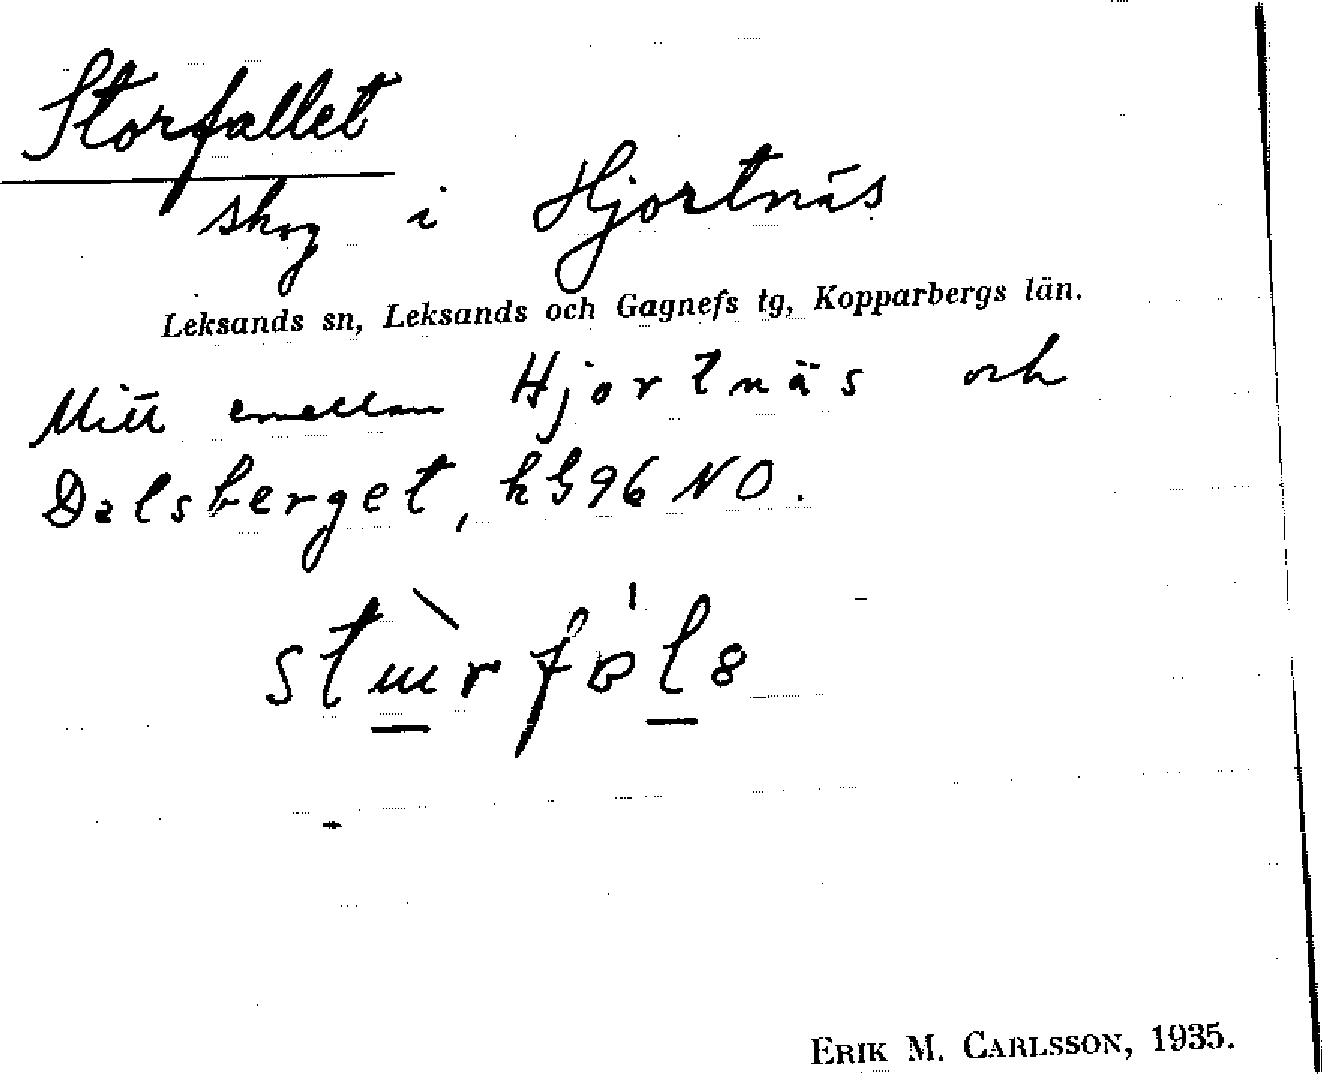 Storfallet
skog i Hjortnäs
Leksands sn, Leksands och Gagnefs tg, Kopparbergs län.
Mitt emellan Hjortnäs och
Dalsberget, kG96 NO.
ERIK M. CARLSSON, 1935.